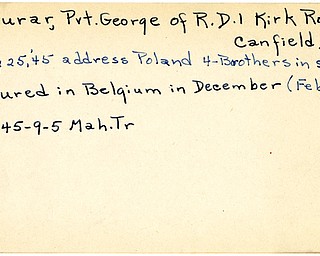 urar, Pvt. George of R.D.1 Kirk R
Canfield,
25,'45 address Poland 4-Brothers in s
ured in Belgium in December (Feb
45-9-5 Mah.Tr